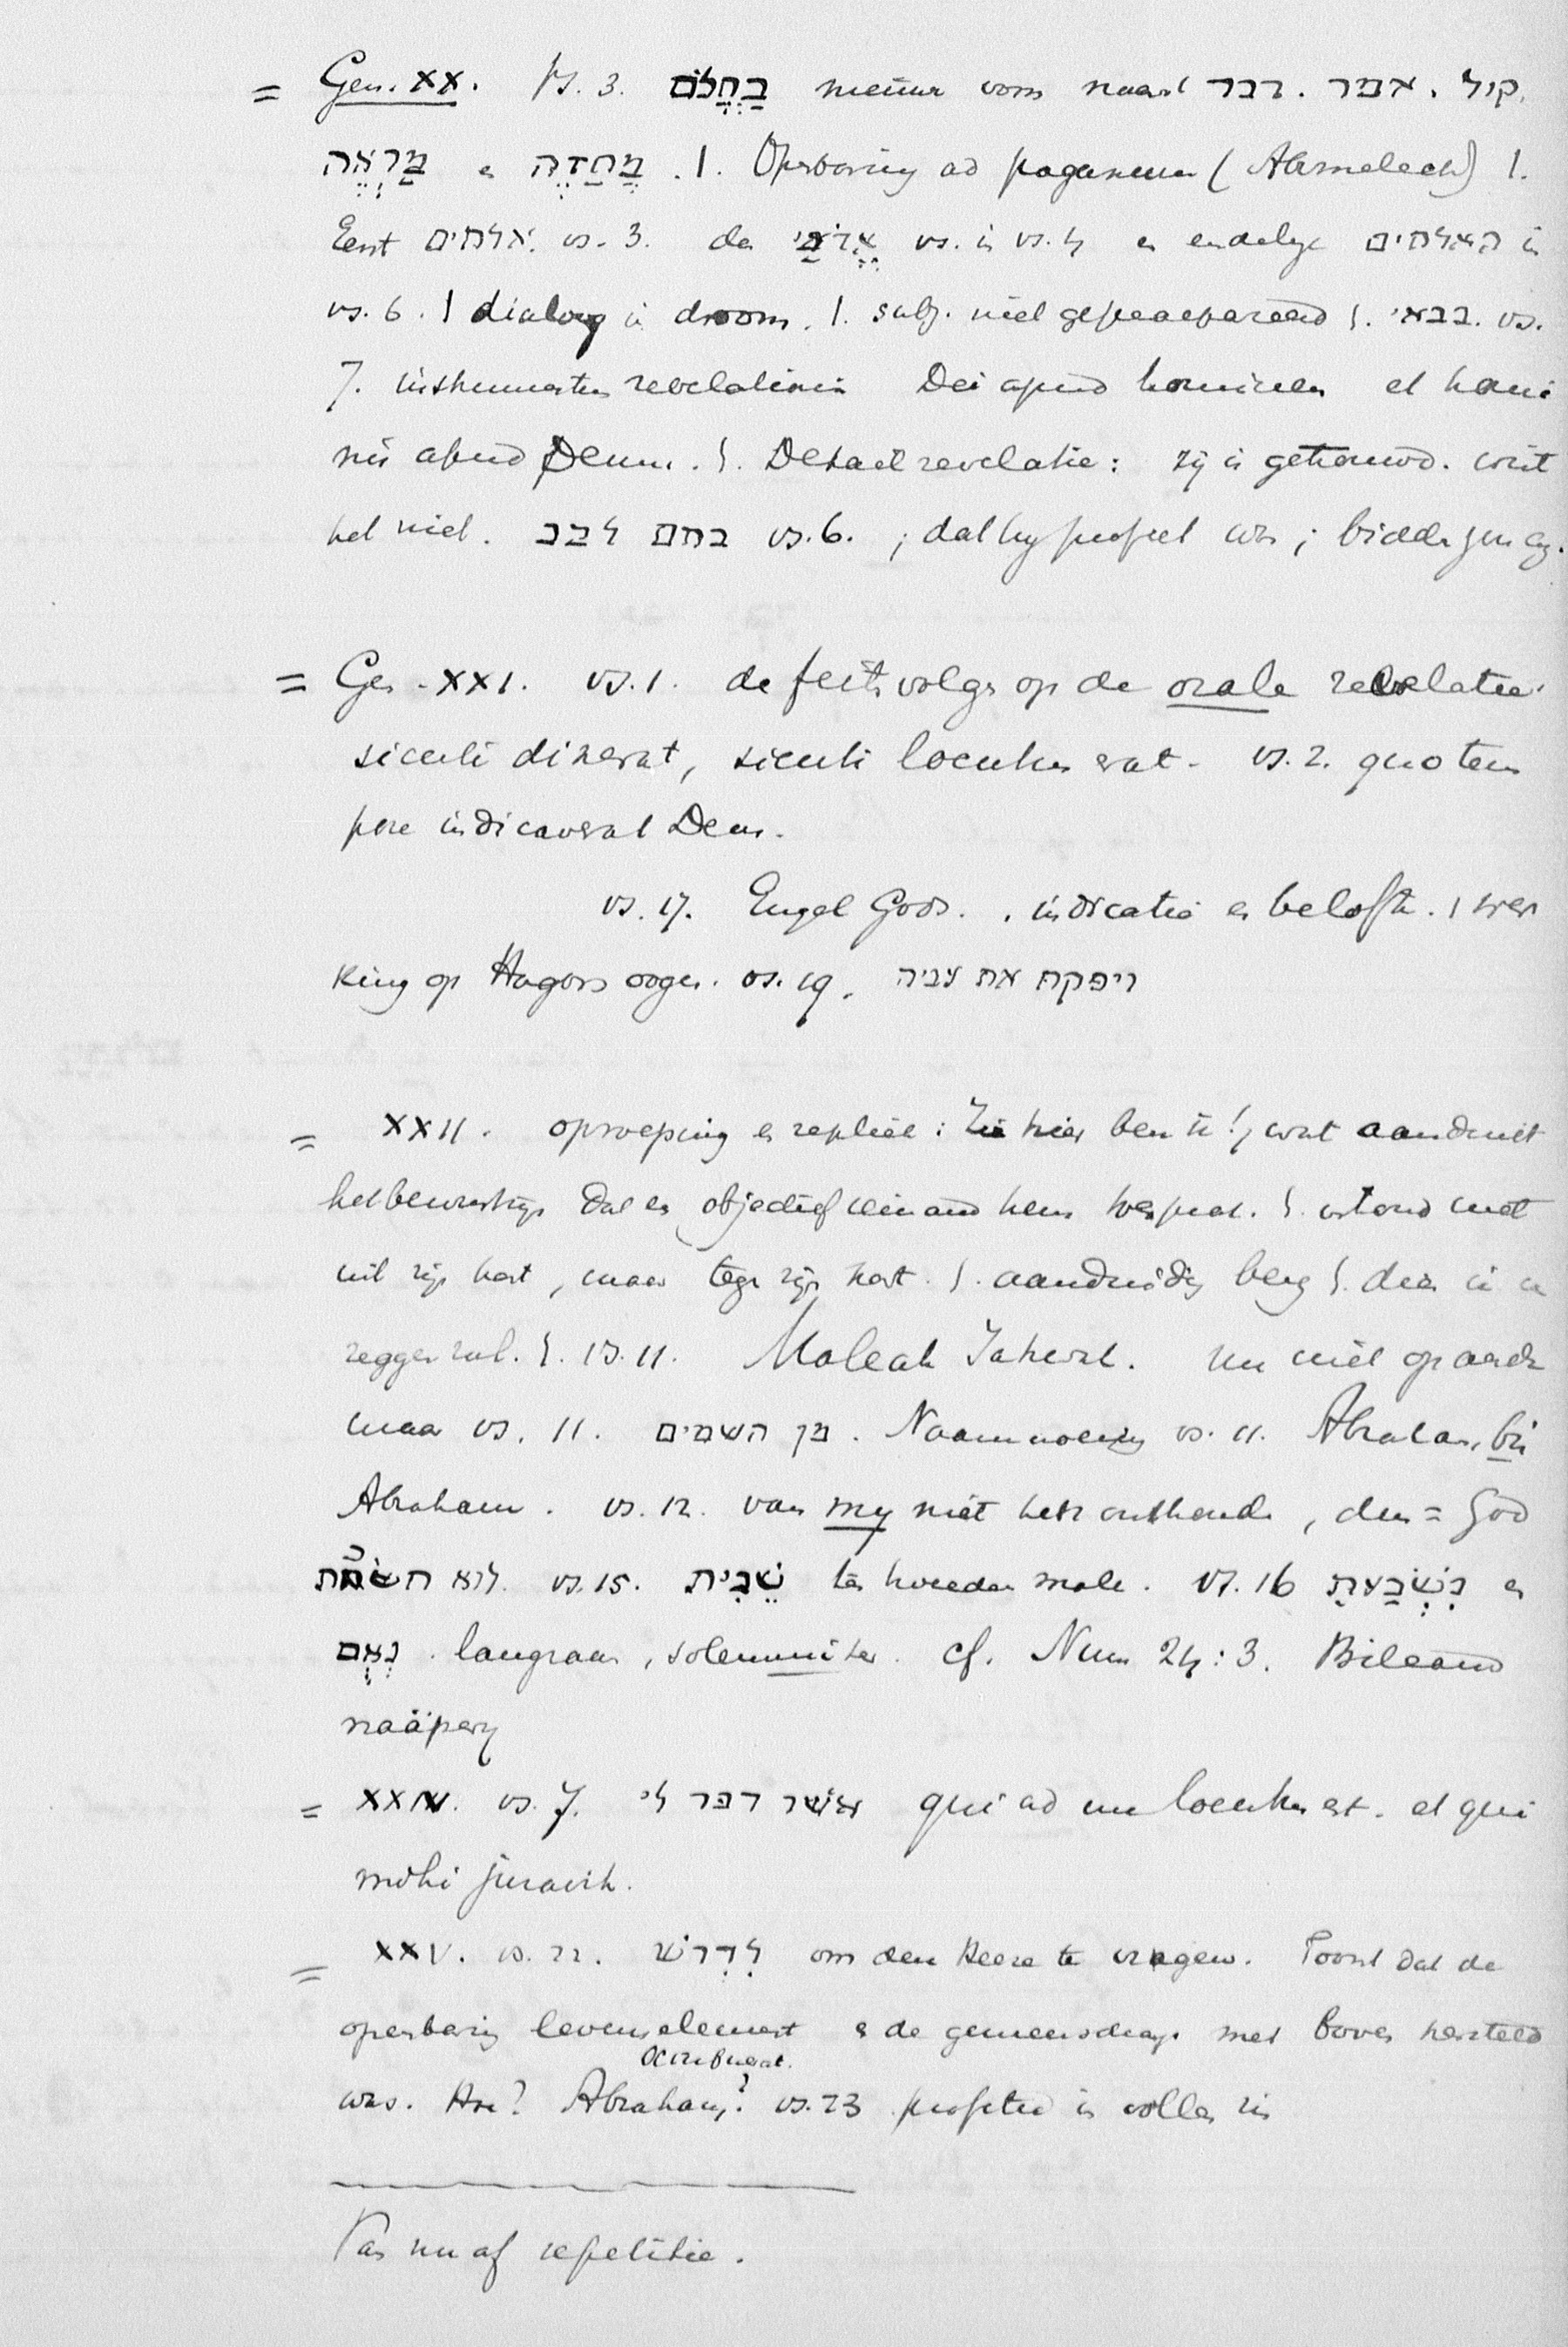 = Gen. XX. vs. 3. בַּחֲלוֹם nieuwe vorm naast קול. אמר. דבר.
מַרְאֶה en מַחֲזֶה. |. Openbaring ad paganum (Abimelech) |.
Eerst אלהים. vs. 3. dan אֲדֹנָי vs. in vs. 4 en eindelijk האלהים in
vs. 6. | dialoog in droom. |. subj. niet gepraepareerd |. נביא. vs.
7. instrumenten revelationis Dei apud hominem et homi
nis apud Deum. |. Detail revelatie: zij is getrouwd. wist
het niet. בתם לבב vs. 6. ; dat hij profeet was ;
= Gen. XXI. vs. 1. de feiten volgen op de orale revelatie.
sicuti dixerat, sicuti locutus erat. vs. 2. quo tem
pore indicaverat Deus.
vs. 17. Engel Gods. . indicatie en belofte. | wer
king op Hagars oogen. vs. 19. ויפקח את עניה
= XXII. oproeping en repliek: Zie hier ben ik!, wat aanduidt
het bewustzijn dat er objectief iemand hem toesprak. |. stond niet
uit zijn hart, maar tegen zijn hart. |. aanduiding berg |. dien ik u
zeggen zal. |. vs. 11. Maleach Jahwe. nu niet op aarde
maar vs. 11. מן השמים. Naamnoeming vs. 11. Abraham, bis
Abraham. vs. 12. van mij niet hebt onthouden, dus = God
לא חשכת. vs. 15. שֵׁנִית ten tweeden male. vs. 16 נִשְׁבַּעְתִּי en
נְאֻם. langzaam, solemniter. cf. Num 24:3. Bileams
= XXIV. vs. 7. אשר דבר לי qui ad me locutus est. et qui
mihi juravit.
= XXV. vs. 22. לִדְרֹשׁ om den Heere te vragen. Toont dat de
openbaring levenselement en de gemeenschap met boven hersteld
was. Hoe? Abraham? vs. 23 profetie in vollen zin
Van nu af repetitie.